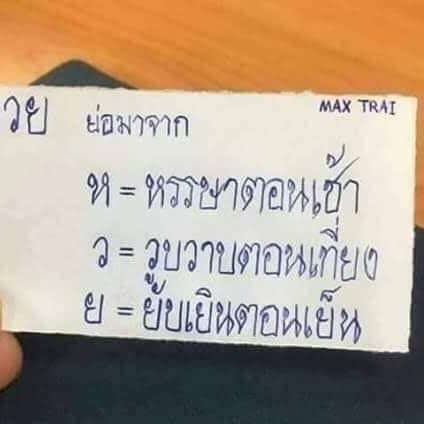 วย ย่อมาจาก MAX TRAI
ห = หรรษาตอนเช้า
ว = วูบวาบตอนเที่ยง
ย = ยับเยินตอนเย็น